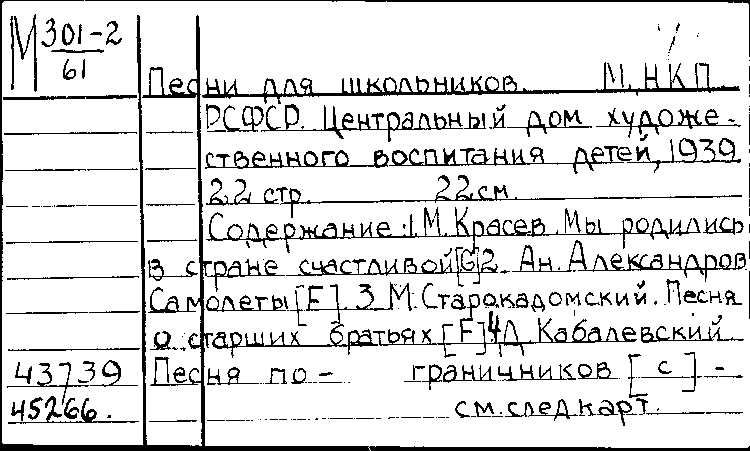 М 301-2
61
Песни для школьников. М, НКП
РСФСР. Центральный дом художе-
ственного воспитания детей, 1939
22 стр. 22 см.
Содержание: 1. М. Красев. Мы родились
в стране счастливой [G] 2. Ан. Александров
Самолеты [F]. 3 М. Старокадомский. Песня
о старших братьях [F] 4 Д. Кабалевский
43739 Песня по- граничников [с] -
45266. см. след. карт.